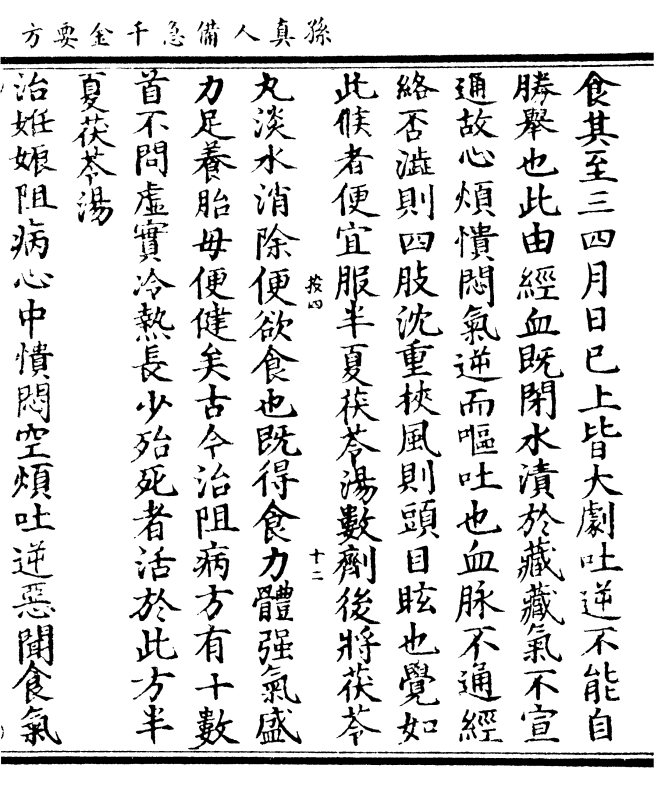 孫真人備急千金要方
食其至三四月日已上皆大劇吐逆不能自
勝舉也此由經血既閉水漬於藏藏氣不宣
通故心煩憒悶氣逆而嘔吐也血脉不通經
絡否澁則四肢沈重挾風則頭目眩也覺如
此候者便宜服半夏茯苓湯數劑後將茯苓
按四
十二
丸淡水消除便欲食也既得食力體强氣盛
力足養胎母便健矣古今治阻病方有十數
首不問虛實冷熱長少殆死者活於此方半
夏茯苓湯
治姙娠阻病心中憒悶空煩吐逆惡聞食氣